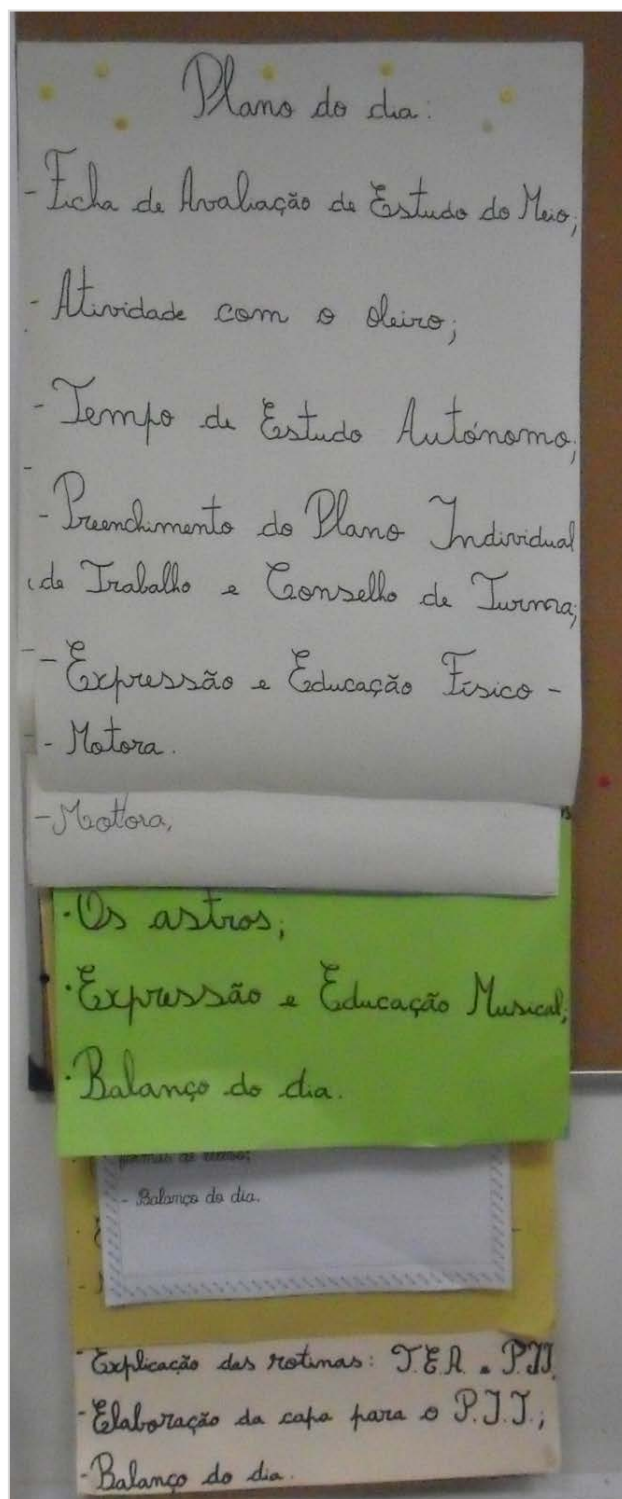 Plano do dia:
- Ficha de Avaliação de Estudo do Meio;
- Atividade com o oleiro;
- Tempo de Estudo Autónomo;
- Preenchimento do Plano Individual
de Trabalho e Conselho de Turma;
- Expressão e Educação Físico -
- Motora.
- Motora,
· Os astros;
· Expressão e Educação Musical;
· Balanço do dia.
- Balanço do dia.
- Explicação das rotinas: T.E.A. e P.I.T.
- Elaboração da capa para o P.I.T.;
- Balanço do dia.